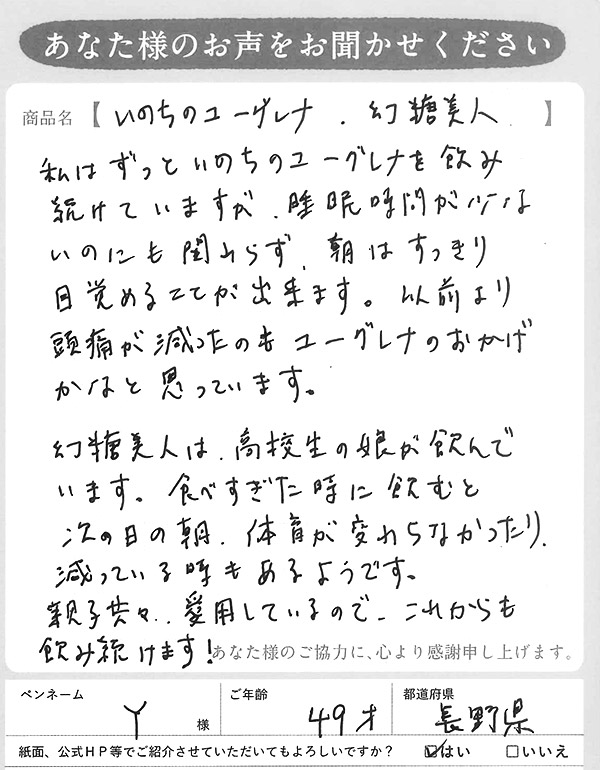 あなた様のお声をお聞かせください
商品名【 いのちのユーグレナ . 幻糖美人 】
私はずっといのちのユーグレナを飲み
続けていますが、睡眠時間が少な
いのにも関わらず、朝はすっきり
目覚めることが出来ます。以前より
頭痛が減ったのもユーグレナのおかげ
かなと思っています。
幻糖美人は、高校生の娘が飲んで
います。食べすぎた時に飲むと
次の日の朝、体育が変わらなかったり、
減っている時もあるようです。
親子共々、愛用しているので、これからも
飲み続けます!
あなた様のご協力に、心より感謝申し上げます。
ペンネーム Y 様 ご年齢 49才 都道府県 長野県
紙面、公式HP等でご紹介させていただいてもよろしいですか? ☑はい □いいえ